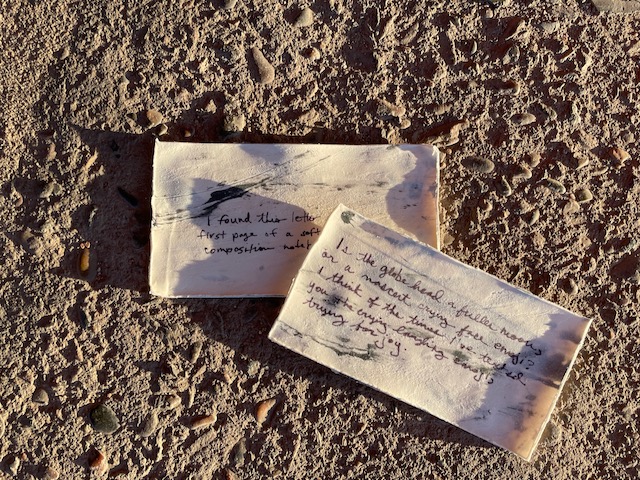 I found this letter
first page of a soft
composition noteb
Is the globe head a fuller moon,
or a nascent crying fire emoji?
I think of the times I've texted
you the crying laughing emoji,
trying for joy.